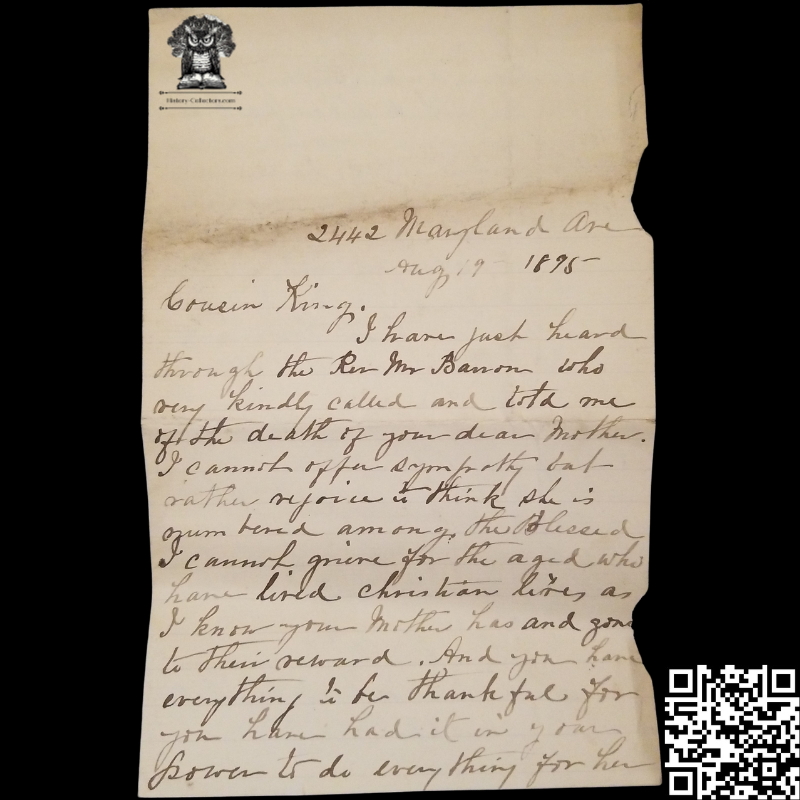 History-Collectors.com
2442 Maryland Ave
Aug 19 1895
Cousin King.
I have just heard
through the Rev Mr Barron who
very kindly called and told me
of the death of your dear Mother.
I cannot offer sympathy but
rather rejoice to think she is
numbered among the Blessed
I cannot grieve for the aged who
have lived christian lives, as
I know your Mother has and gone
to their reward. And you have
everything to be thankful for
you have had it in your
power to do everything for her